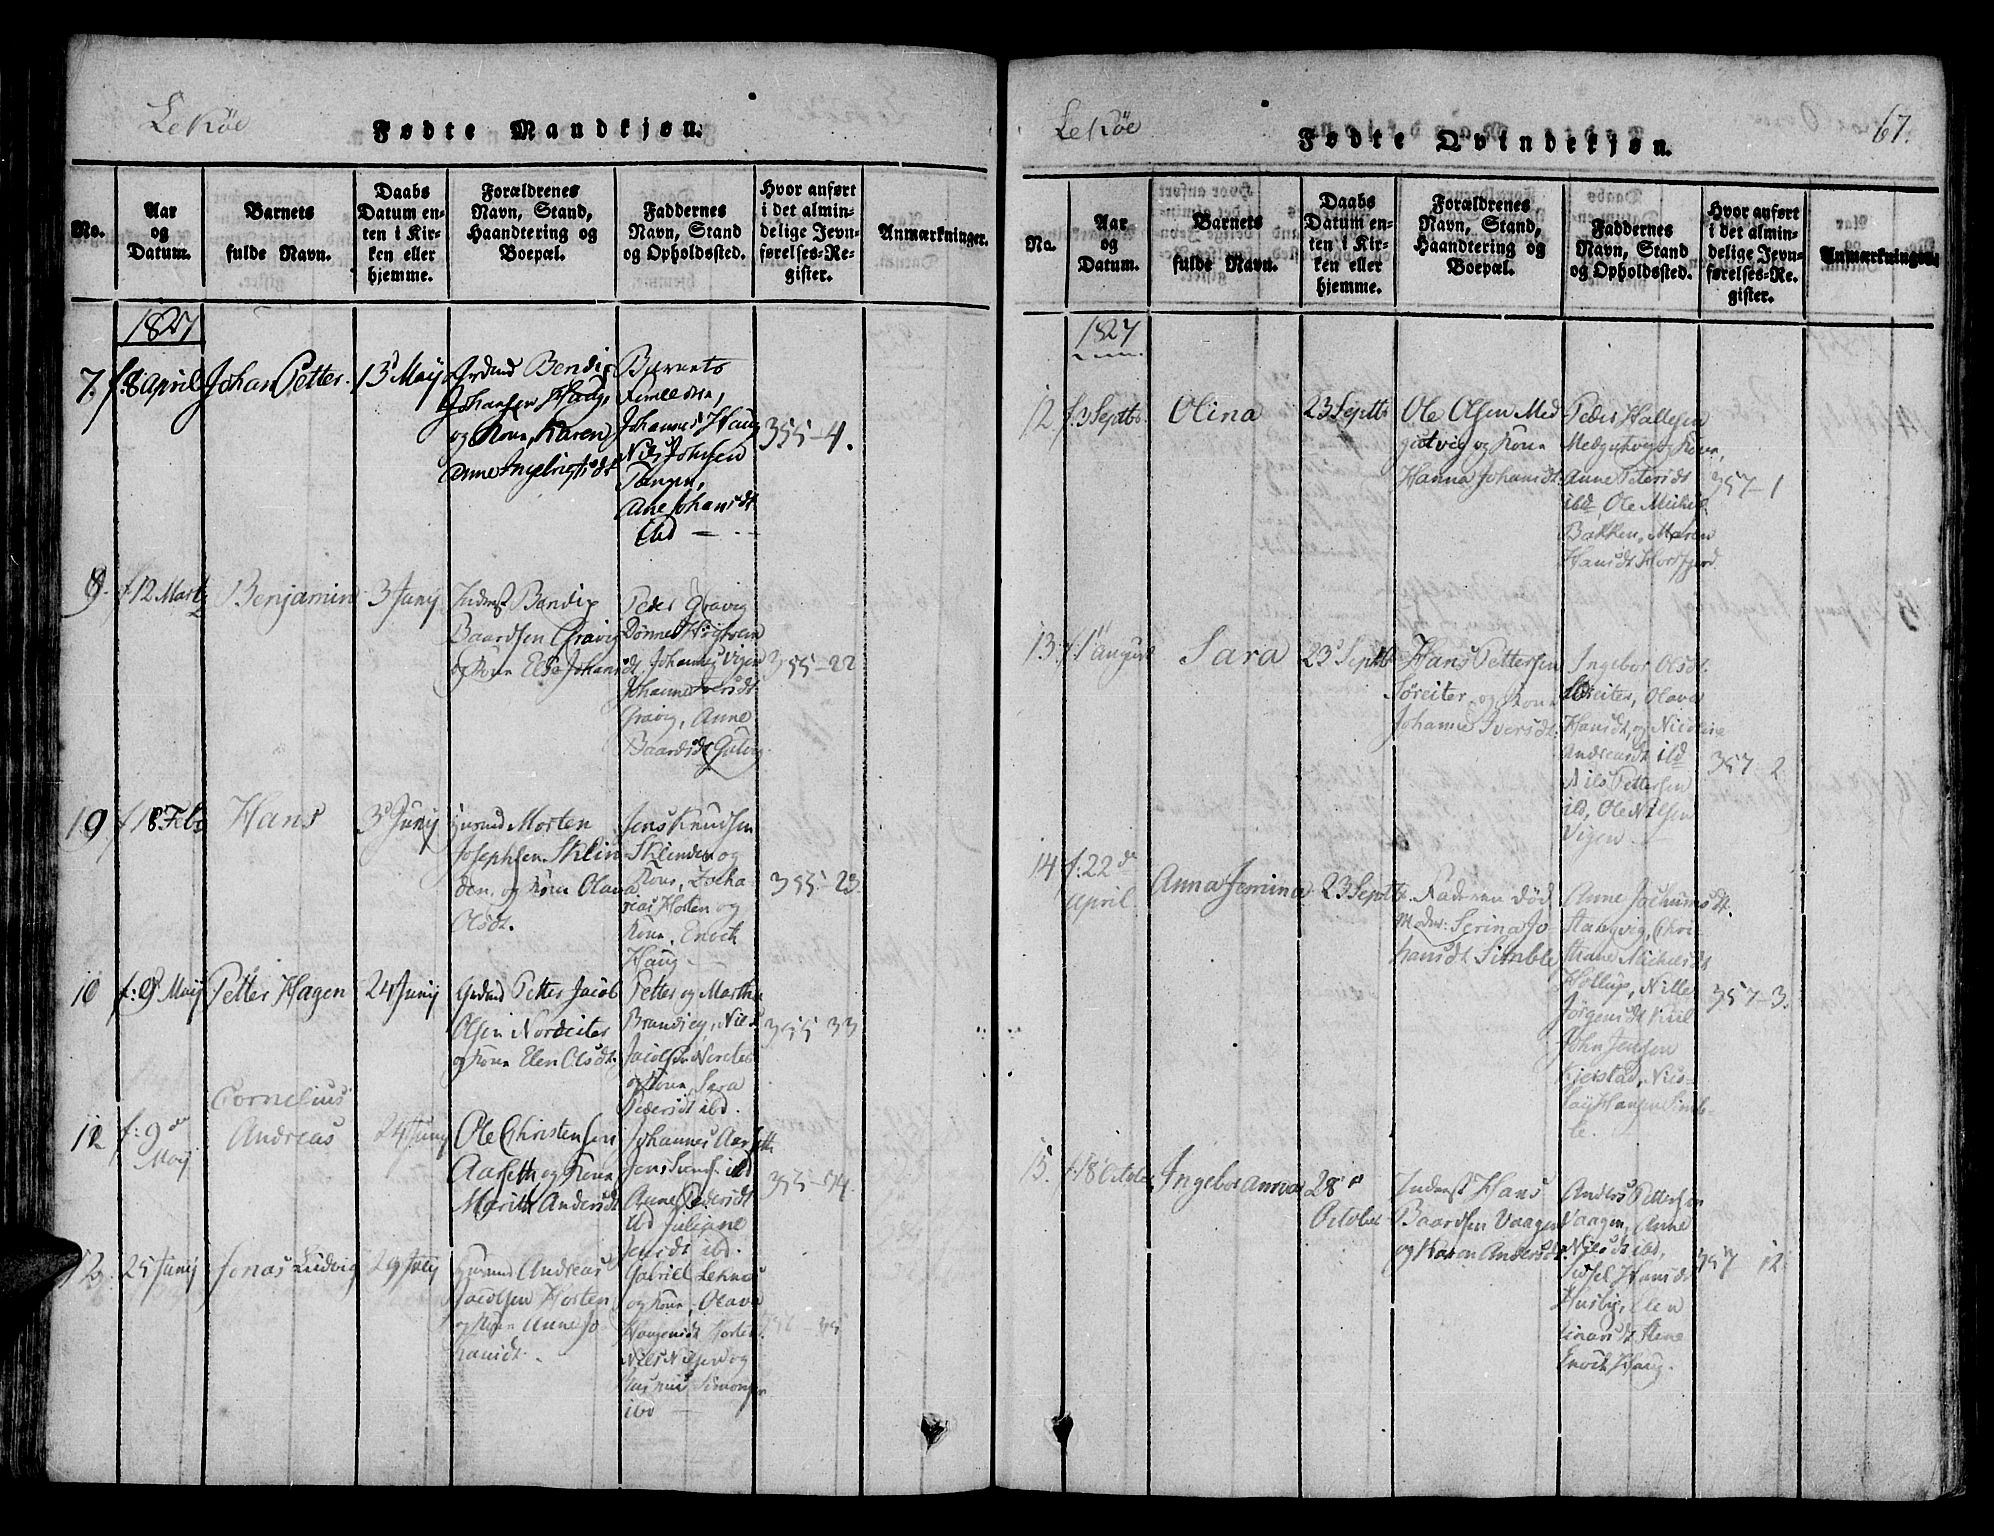 Lekøe
Fødte Mandkjøn.
No.
Aar
og
Datum.
Barnets
fulde Navn.
Daabs
Datum en-
ten i Kir-
ken eller
hjemme.
Forældrenes
Navn, Stand,
Haandtering og
Boepæl.
Faddernes
Navn, Stand
og Opholdssted.
Hvor anført
i det almin-
delige Jevn-
førelses-Re-
gister.
Anmærkninger.
1827
7. f. 8 April
Johan Petter.
13 Maij
Bendix
Johansen Haug,
og Kone, Karen
Anne Ingebrigtsdt.
Barnets
Forældre,
Johannes Haug
Nils Johnsen
Tangen,
Ane Johansdt
ibd
355-4.
f. 12 Marts
Benjamin
3 Junij
Inderst Bendix
Baardsen Gravig
og Kone Else Johansdt
Peder Gravig
Johannes Vigen
Johanne Iversdt
Gravig, Anne
Baardsdt
355-22
f. 18 Feb
Hans
3 Junij
Morten
Josephsen Sklin
den og Kone Olava
Olsdt.
Jens Knudsen
Sklinden og
Kone, Zacha-
rias Horten og
Kone, Enoch
Haug
355-23.
10
f: 9 Maij
Petter Hagen
24 Junij
Petter Jacob
Olsen Nordeiter
og Kone Elen Olsdt.
Petter og Martha
Jacobsen
og Kone, Sara
Pedersdt ibd.
355 33
f: 9de
Maij
Cornelius
Andreas
24 Junij
Ole Christensen
Aarseth og Kone
Marith Andersdt
Johannes Aarseth
ibd
Anne Pedersdt
ibd Juliane
Jensdt ibd.
355-34.
25 Junij
Jonas Ludvig
29 Julij
Andreas
Jacobsen Horten
og Kone Anne Jo
hansdt.
Gabriel Leknes
og Kone, Olava
Haagensdt Horten
Nils Nilsen og
Rasmus Simonsen
ibd
Lekøe
Fødte Qvindekjøn.
67.
No.
Aar
og
Datum.
Barnets
fulde Navn.
Daabs
Datum en-
ten i Kir-
ken eller
hjemme.
Forældrenes
Navn, Stand,
Haandtering og
Boepæl.
Faddernes
Navn, Stand
og Opholdssted.
Hvor anført
i det almin-
delige Jevn-
førelses-Re-
gister.
Anmærkninger
1827
12. f. 3 Septb
Olina
23 Septb
Ole Olsen Med
gutvig og Kone
Hanna Johansdt.
Peder Hallesen
Medgutvig og Kone,
Anne Petersdt
ibd, Ole Michel
Bakken, Maren
Hansdt Horsfjord.
357-1
13. f. 1 August
Sara
23 Septb
Hans Pettersen
Søreiter og Kone
Johanne Iversdt.
Ingebor Olsdt.
Søreiter, Olava
Hansdt, og Nicoline
Andreasdt ibd
Nils Pettersen
ibd, Ole Nilsen
Vigen.
357 2
14 f. 22de
April
Anna Jemina
23 Septb
Faderen død
Moder: Serina Jo
hansdt Simble
Anne Jochumsdt.
Stangvig, Chri
stiane Michelsdt
Hollup, Nille
Jørgensdt Kiil
John Jensen
Kjeistad, Nico-
lay Hansen Simb-
le.
357-3.
15. f. 8 October
Ingebor Anna
28de
October
Inderst Hans
Baardsen Vaagen
og Karen Andersdt.
Anders Pettersen
Vaagen, Anne
Nilsdt ibd,
Sidsel Hansdt
Husby, Elen
Enoch Haug.
357 12